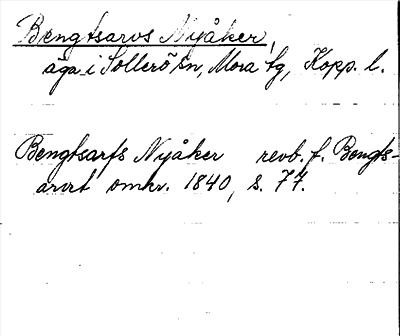 Bengtsarvs Nyåker,
äga i Sollerö sn, Mora tg, Kopp. l.
Bengtsarfs Nyåker revb. f. Bengts-
arvet omkr. 1840, s. 77.